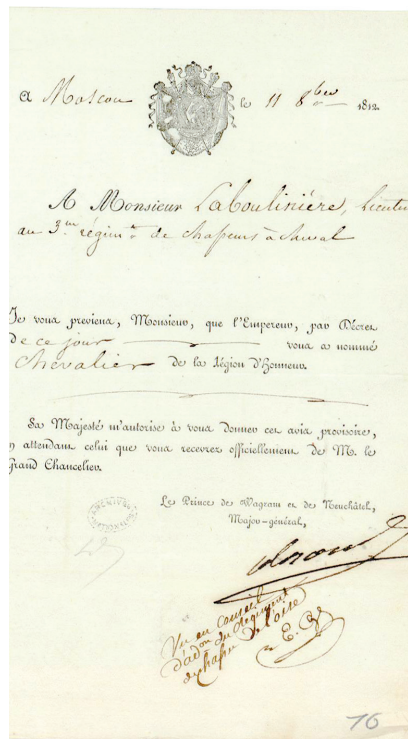 A Moscou le 11 8bre 1812.
A Monsieur Laboulinière, Lieuten
au 3.me régim.t de chasseurs à cheval
Je vous préviens, Monsieur, que l'Empereur, par Décret
de ce jour vous a nommé
Chevalier de la Légion d'Honneur.
Sa Majesté m'autorise à vous donner cet avis provisoire,
n attendant celui que vous recevrez officiellement de M. le
Grand Chancelier.
Le Prince de Wagram et de Neuchâtel,
Major-général,
ARCHIVES
NATIONALES
Vu en conseil
d'adon du Régiment
de chass.
de l'oise
E.
76